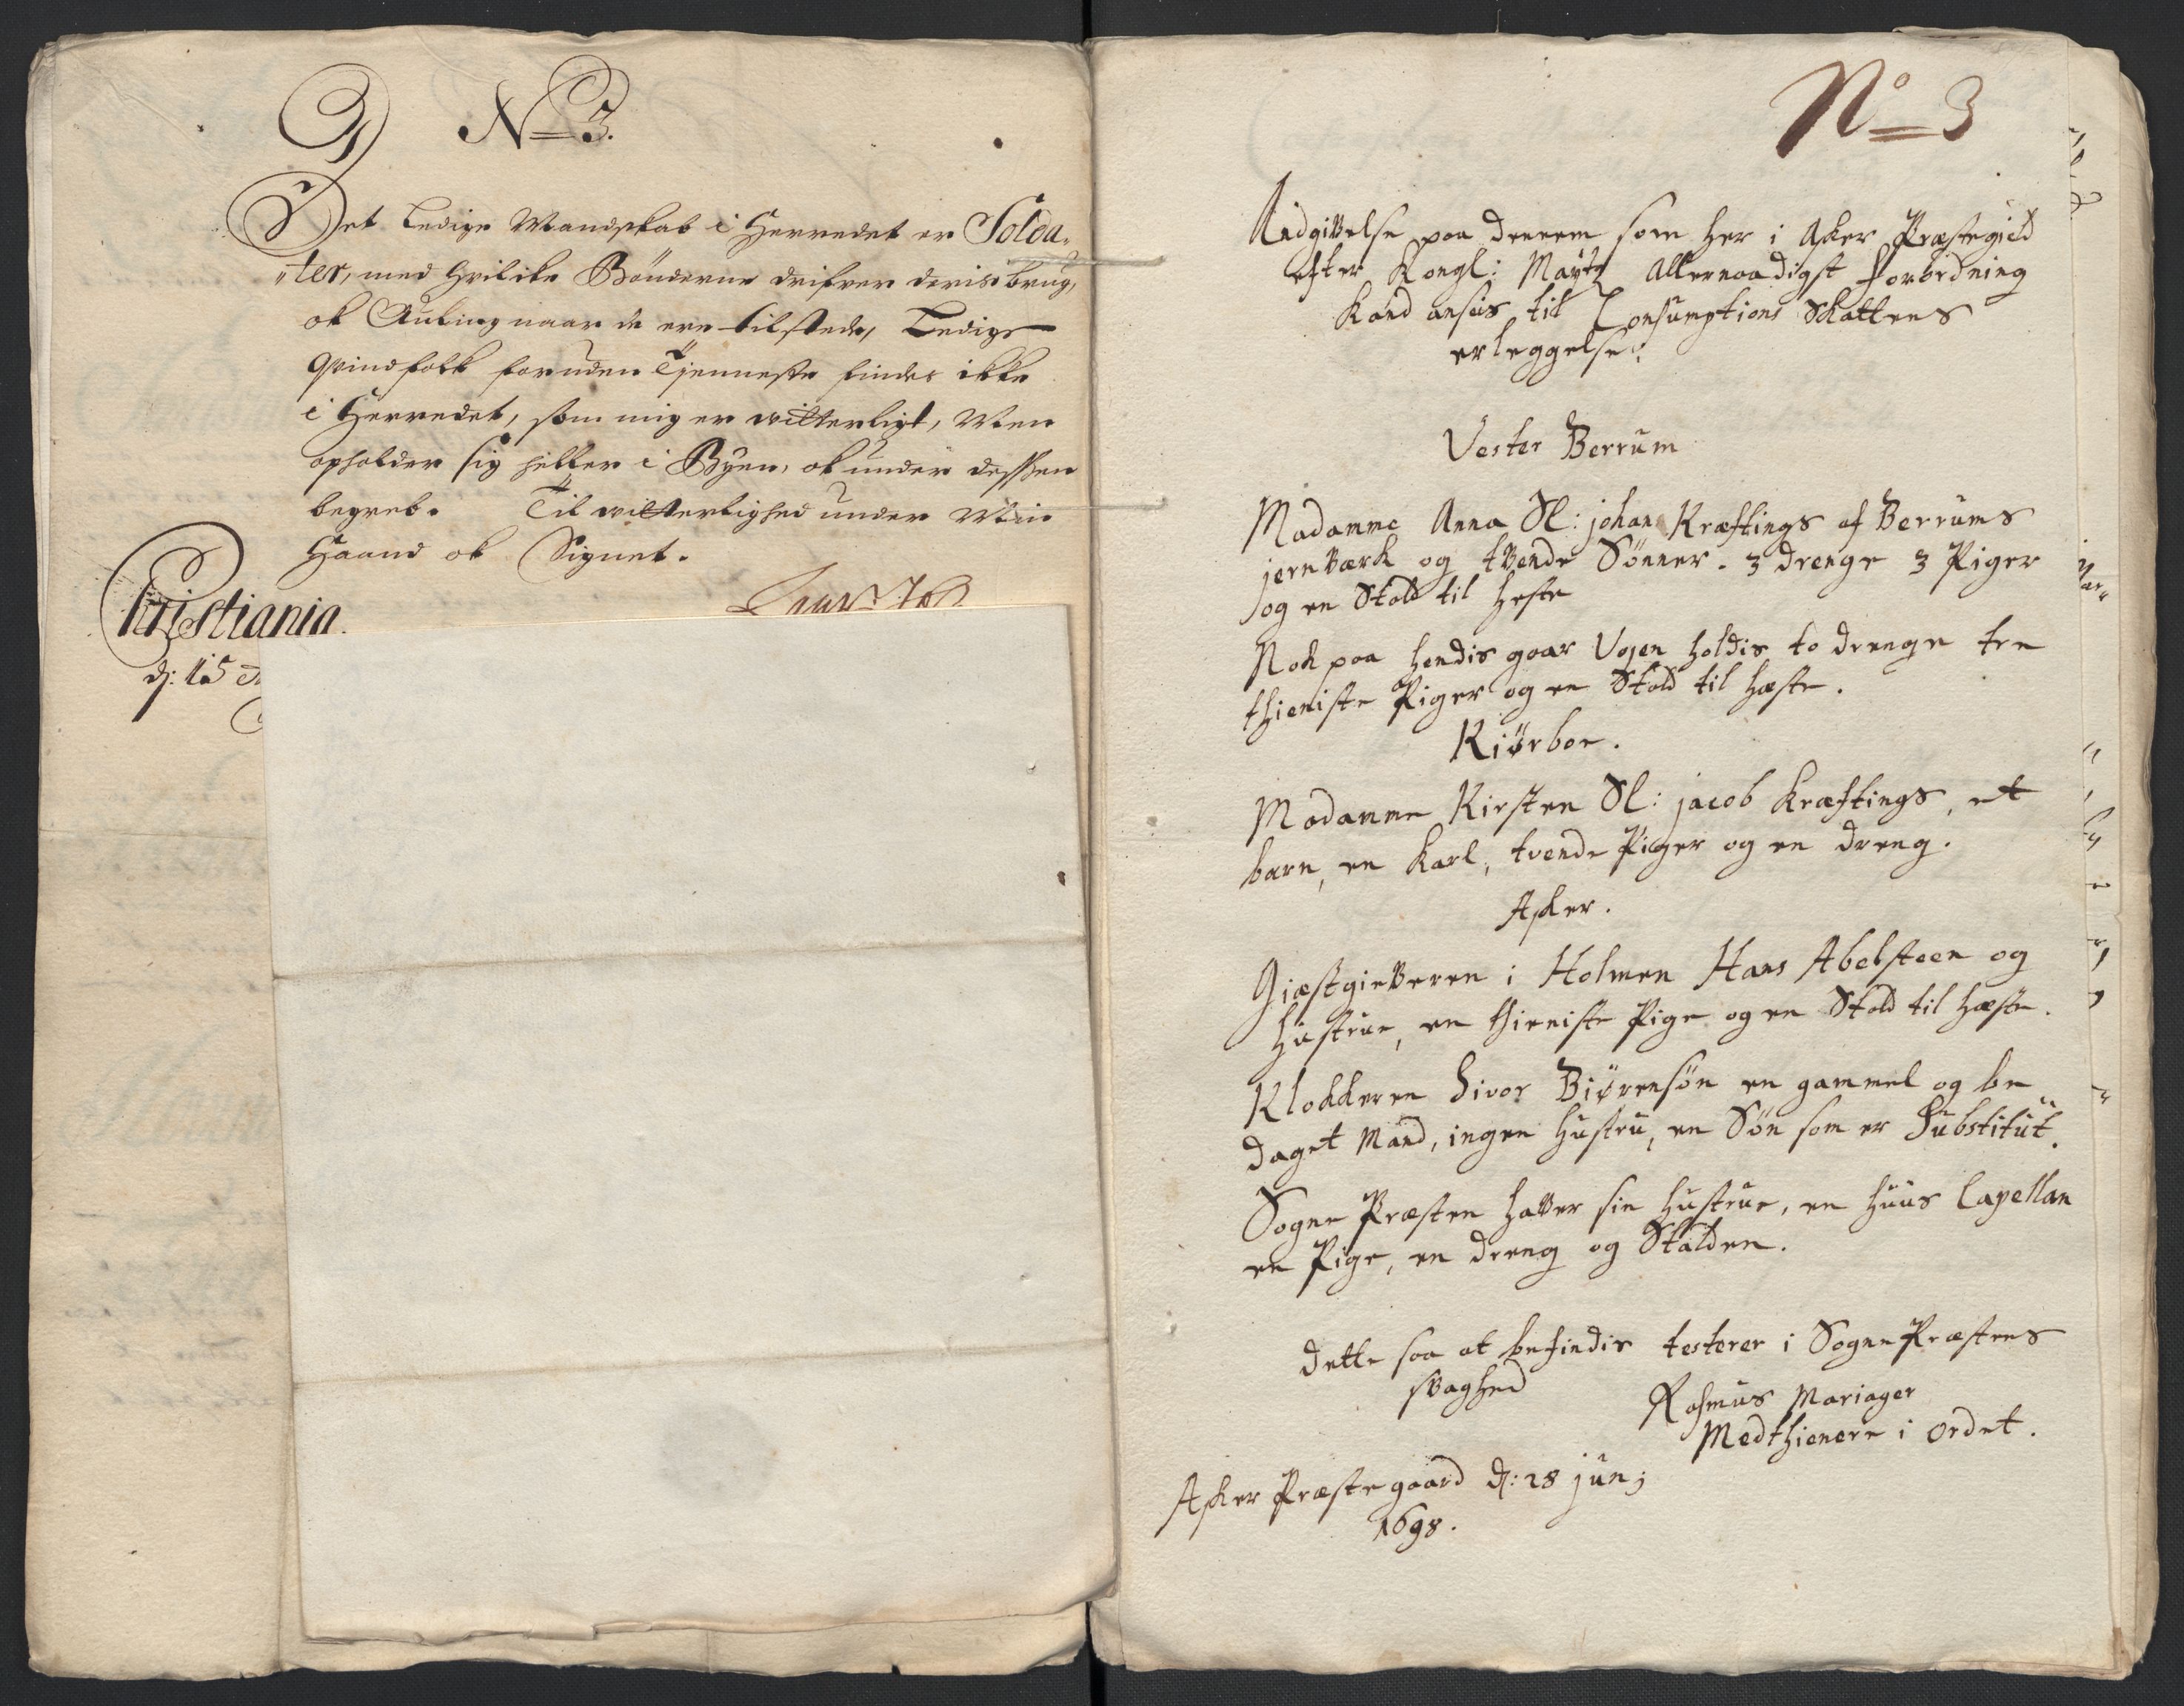 No 3.
Det Ledige Mandskab i Herredet er Solda-
"ter, med hvilcke Bønderne drifver deris brug,
ok Auling naar de ere tilstede, Ledige
Qvindfolk foruden Tjenneste findes ikke
i Herredet, som mig er witterligt, Men
opholder sig heller i Byen, ok under desssen
begreb. Til witterlighed under Min
Haand ok Signet.
Christiania
d: 15
No 3
Andgivelse paa dennem som her i Asker Præstegield
efter Kongl: Mayts Allernaadigst forordning
kand ansees til Consumptions Skattens
erleggelse:
Vester Berrum
Madamme Anna Sl: johan Kræftings af Berrums
jernværk og tvende Sønner. 3 drenge 3 Piger
og en Stald til heste
Nok paa hendis gaar Vøjen holdis to drenge tre
thieniste Piger og en Stald til hæste.
Kiørboe.
Madamme Kirsten Sl: jacob Kræftings, et
barn, en Karl, tvende Piger og en dreng.
Asker.
Giæstgiefveren i Holmen Hans Abelsteen og
hustrue, en thieniste Pige og en Stald til hæste.
Klokkeren Sivor Biørensøn en gammel og be"
daget Mand, ingen hustru, en Søn som er Substitut.
Sogne Præsten hafver sin hustrue, en huus Capellan
en Pige, en dreng og Stalden.
dette saa at befindis testerer i SognePræstens
svaghed
Rasmus Mariager
Medthienere i ordet.
Asker Præstegaard d: 28 junj
1698.